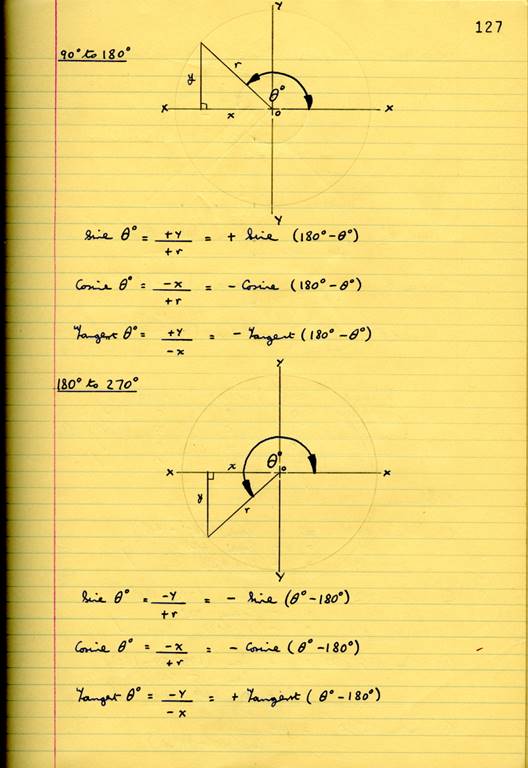 127
90° to 180°
Y
r
y
θ°
X
x
o
X
Y
Sine θ° = +Y/+r = + Sine (180°-θ°)
Cosine θ° = -x/+r = - Cosine (180°-θ°)
Tangent θ° = +Y/-x = - Tangent (180°-θ°)
180° to 270°
Y
θ°
X
x
o
X
y
r
Y
Sine θ° = -Y/+r = - Sine (θ°-180°)
Cosine θ° = -x/+r = - Cosine (θ°-180°)
Tangent θ° = -Y/-x = + Tangent (θ°-180°)